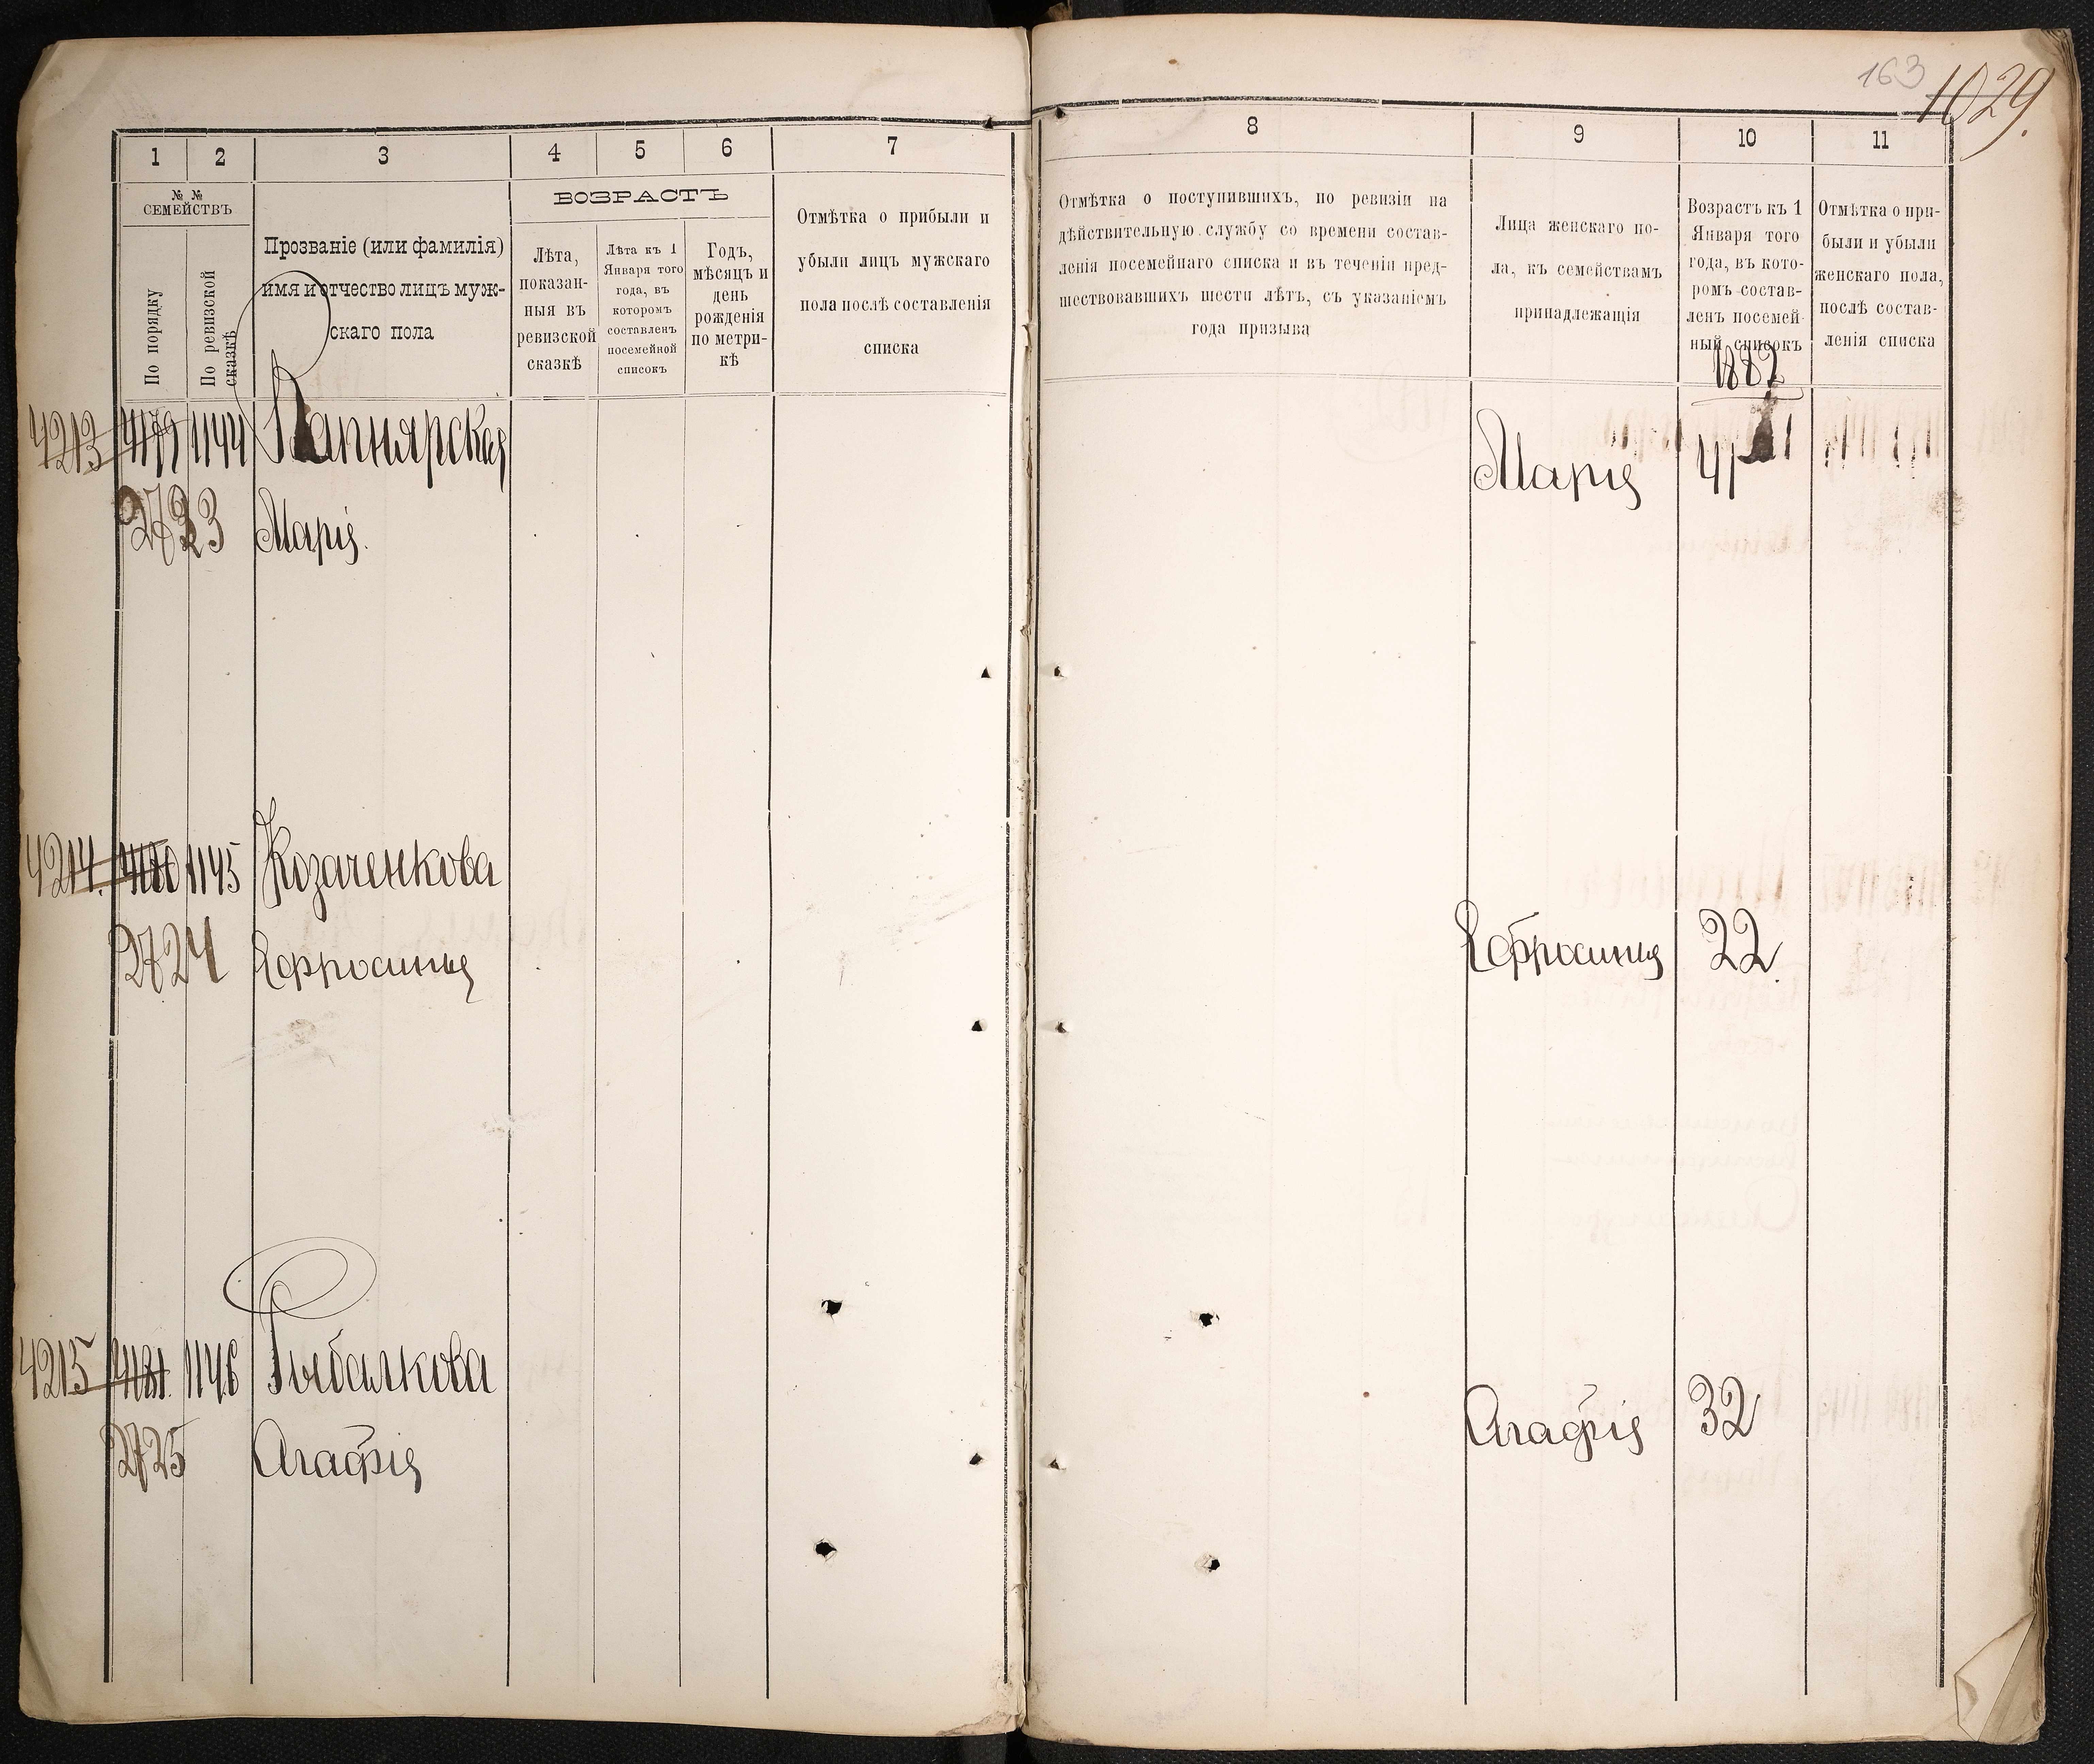 163
1029.
1 2 3 4 5 6 7
№ №
СЕМЕЙСТВЪ
По порядку
По ревизской
сказкѣ
Прозваніе (или фамилія)
имя и отчество лицъ муж-
скаго пола
ВОЗРАСТЪ
Лѣта,
показан-
ныя въ
ревизской
сказкѣ
Лѣта къ 1
Января того
года, въ
которомъ
составленъ
посемейной
списокъ
Годъ,
мѣсяцъ и
день
рожденія
по метри-
кѣ
Отмѣтка о прибыли и
убыли лицъ мужскаго
пола послѣ составленія
списка
8 9 10 11
Отмѣтка о поступившихъ, по ревизіи на
дѣйствительную службу со времени состав-
ленія посемейнаго списка и въ теченіи пред-
шествовавшихъ шести лѣтъ, съ указаніемъ
года призыва
Лица женскаго по-
ла, къ семействамъ
принадлежащія
Возрастъ къ 1
Января того
года, въ кото-
ромъ состав-
ленъ посемей-
ный списокъ
1882
Отмѣтка о при-
были и убыли
женскаго пола,
послѣ состав-
ленія списка
4213 4179 1144 Вапнярская
2723 Марія.
Марія 41
4214. 4180 1145 Козаченкова
2724 Ефросинія
Ефросинія 22
4215 4181. 1146 Рыбалкова
2725 Агафія
Агафія 32